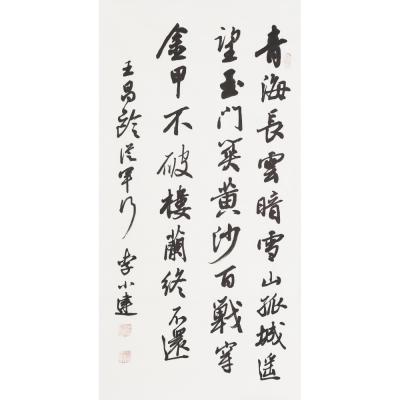 青海長雲暗雪山孤城遥
望玉门关黄沙百戰穿
金甲不破樓蘭終不還
王昌齡從軍行 李小